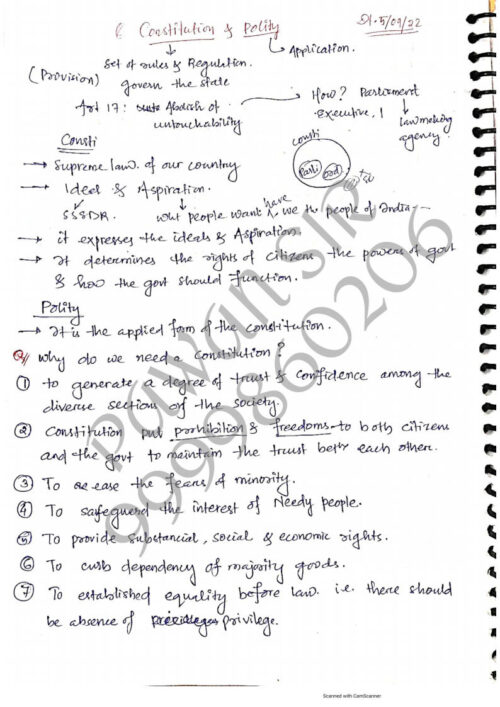 Constitution & Polity
Dt. 5/09/22
Set of rules & Regulation.
Application.
(Provision)
govern the state
Art 17: Abolish of
untouchability
How? Parliament
Executive,
law making
agency
Consti
consti
Parli
→ Supreme law of our country
→ Ideas & Aspiration.
SSSDR.
what people want have, we the people of India -
→ it expresses the ideals & Aspiration.
→ It determines the rights of citizens the powers of govt
& how the govt should function.
Polity
→ It is the applied form of the constitution.
Q/ Why do we need a constitution?
① to generate a degree of trust & confidence among the
diverse section of the society.
② Constitution put prohibition & freedoms to both citizen
and the govt to maintain the trust betn each other.
③ To ease the fears of minority.
④ To safeguerd the interest of Needy people.
⑤ To provide substancial, social & economic rights.
⑥ To curb dependency of majority goods.
⑦ To established equality before law. i.e. there should
be absence of privilege.
Pawan Sir
9999860206
Scanned with CamScanner